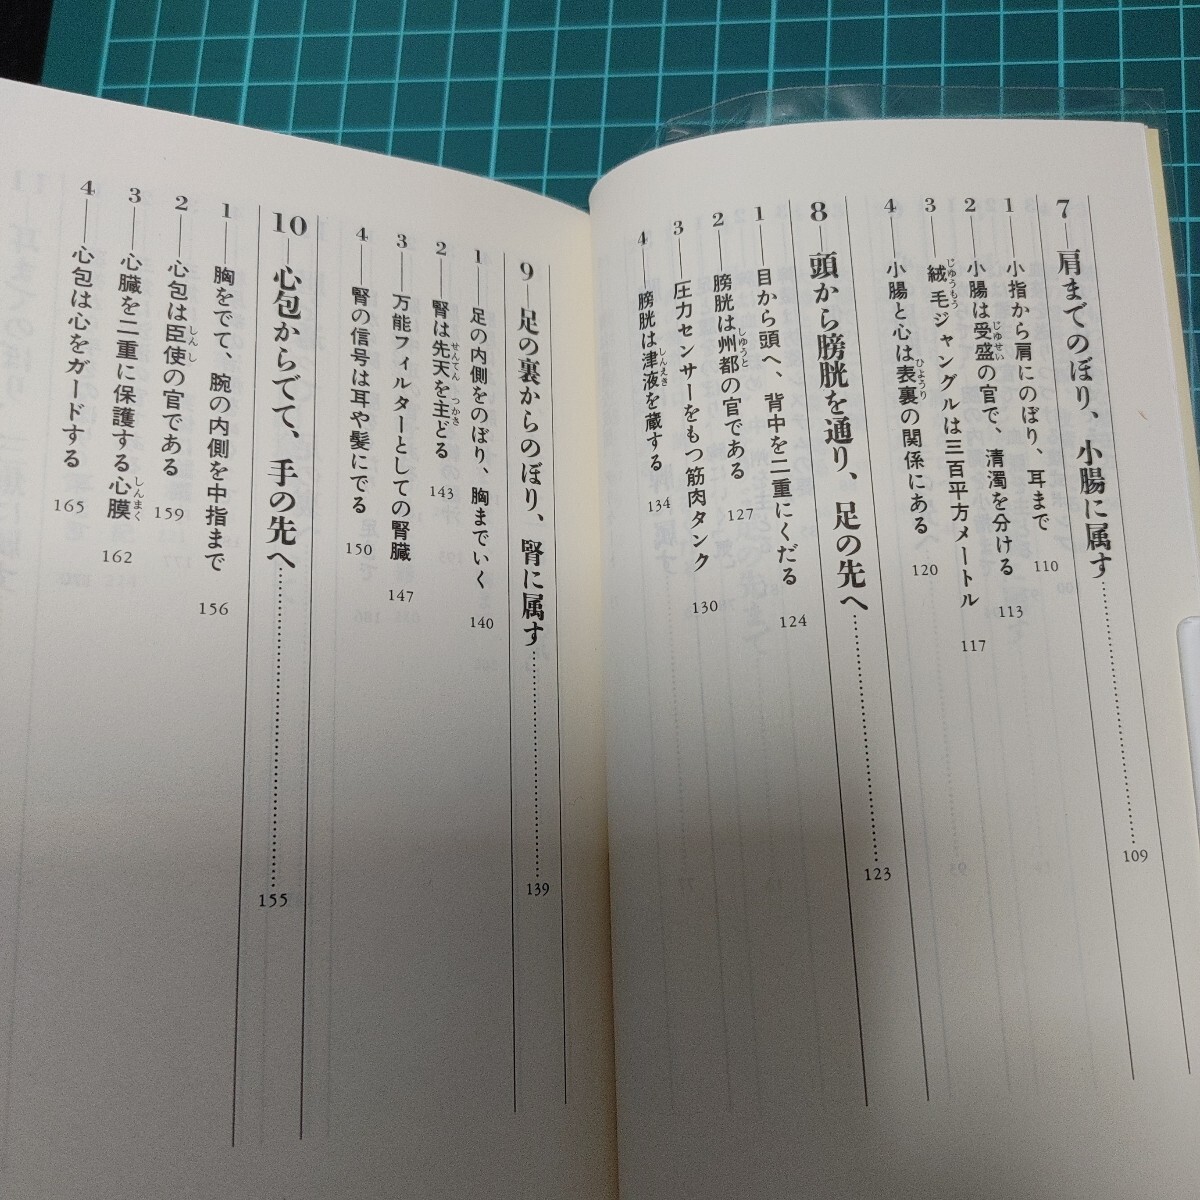 7―肩までのぼり、小腸に属す……109
1―小指から肩にのぼり、耳まで 110
2―小腸は受盛の官で、清濁を分ける 113
じゅせい
3―絨毛ジャングルは三百平方メートル 117
じゅうもう
4―小腸と心は表裏の関係にある 120
ひょうり
8―頭から膀胱を通り、足の先へ……123
1―目から頭へ、背中を二重にくだる 124
2―膀胱は州都の官である 127
しゅうと
3―圧力センサーをもつ筋肉タンク 130
4―膀胱は津液を蔵する 134
しんえき
9―足の裏からのぼり、腎に属す……139
1―足の内側をのぼり、胸までいく 140
2―腎は先天を主どる 143
せんてん つかさ
3―万能フィルターとしての腎臓 147
4―腎の信号は耳や髪にでる 150
10―心包からでて、手の先へ……155
1―胸をでて、腕の内側を中指まで 156
2―心包は臣使の官である 159
しんし
3―心臓を二重に保護する心膜 162
しんまく
4―心包は心をガードする 165